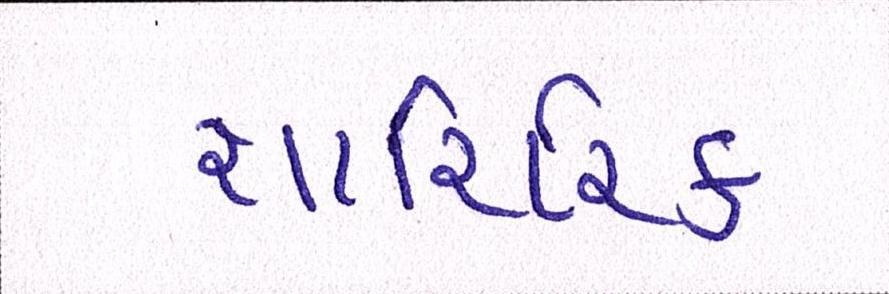 શારિરિક